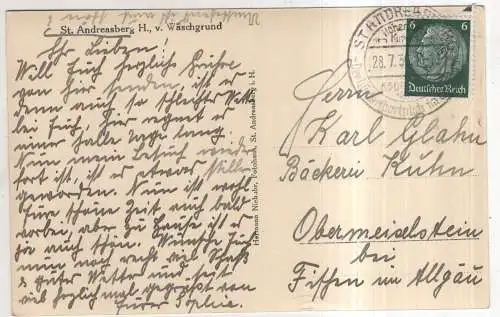 St. Andreasberg H., v. Wäschgrund
Ihr Lieben!
Will Euch herzliche Grüße
von hier senden, ist es
denn auch so schlechtes Wetter
bei Euch, hier regnet es
immer halbe Tage lang.
Nun mein Besuch wieder
fort ist, ist es etwas stiller
geworden. Nun ist wohl
Eure schöne Zeit auch bald
vorbei, aber zu Hause ist es
ja auch schön. Wünsche Euch
nun noch recht viel Spaß
& gutes Wetter und seid
viel herzlich mal gegrüßt von
Eurer Sophie.
Hermann Niehuhr, Fotohaus, St. Andreasberg i. H.
ST ANDREASBERG
28.7.3
6 6
Deutsches Reich
Herrn
Karl Glahn
Bäckerei Kuhn
Obermeiselstein
bei
Fischen im Allgäu